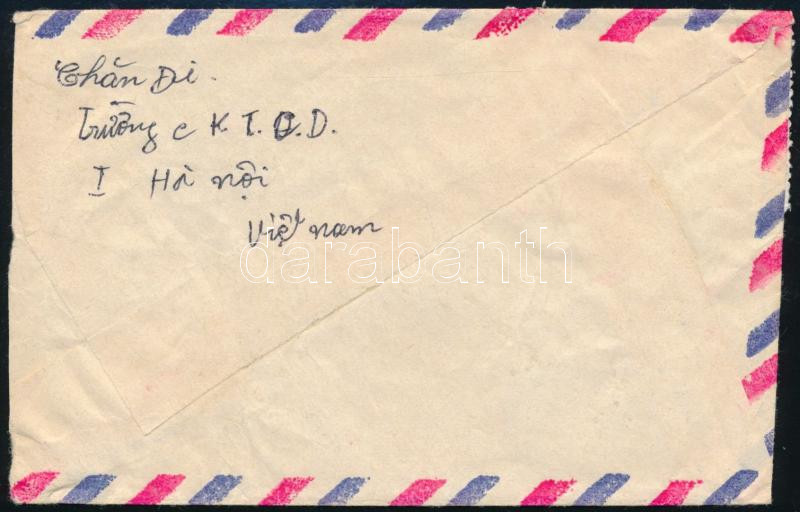 Chẩn Di.
Trường c K.T.Q.D.
I Hà nội
Việt nam
darabanth